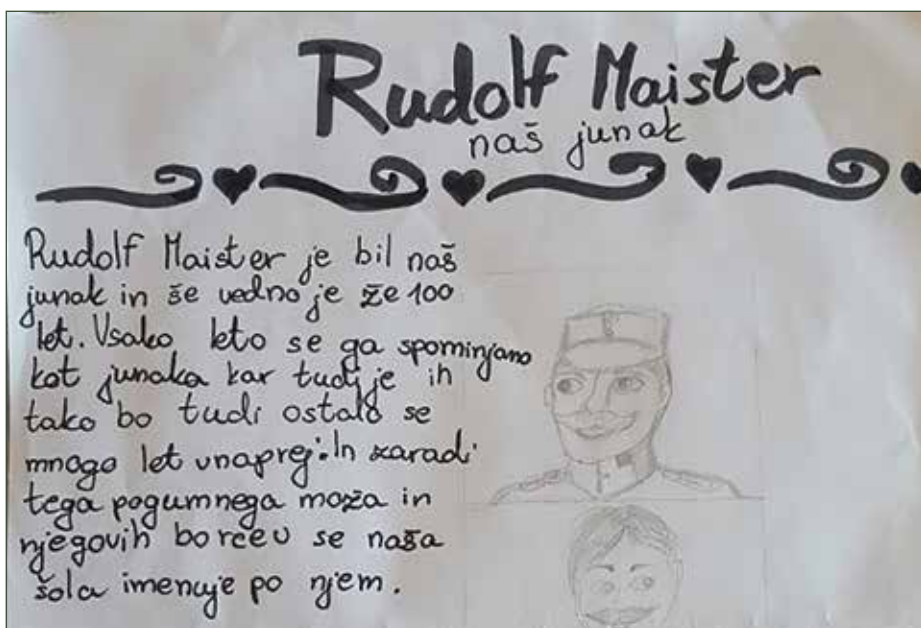 Rudolf Maister
naš junak
Rudolf Maister je bil naš
junak in še vedno je že 100
let. Vsako leto se ga spominjamo
kot junaka kar tudi je in
tako bo tudi ostalo se
mnogo let vnaprej. In zaradi
tega pogumnega moža in
njegovih borcev se naša
šola imenuje po njem.